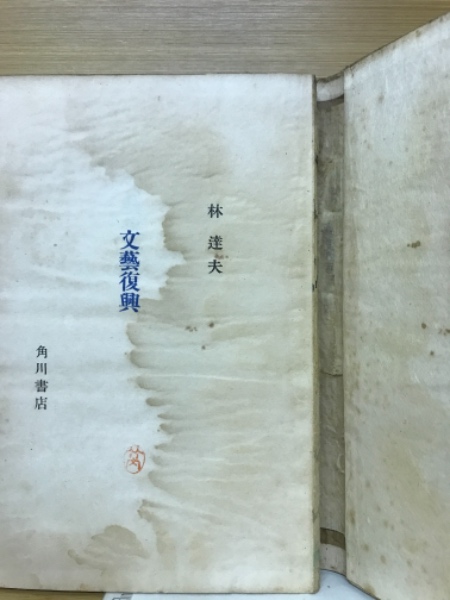 林達夫
文藝復興
角川書店